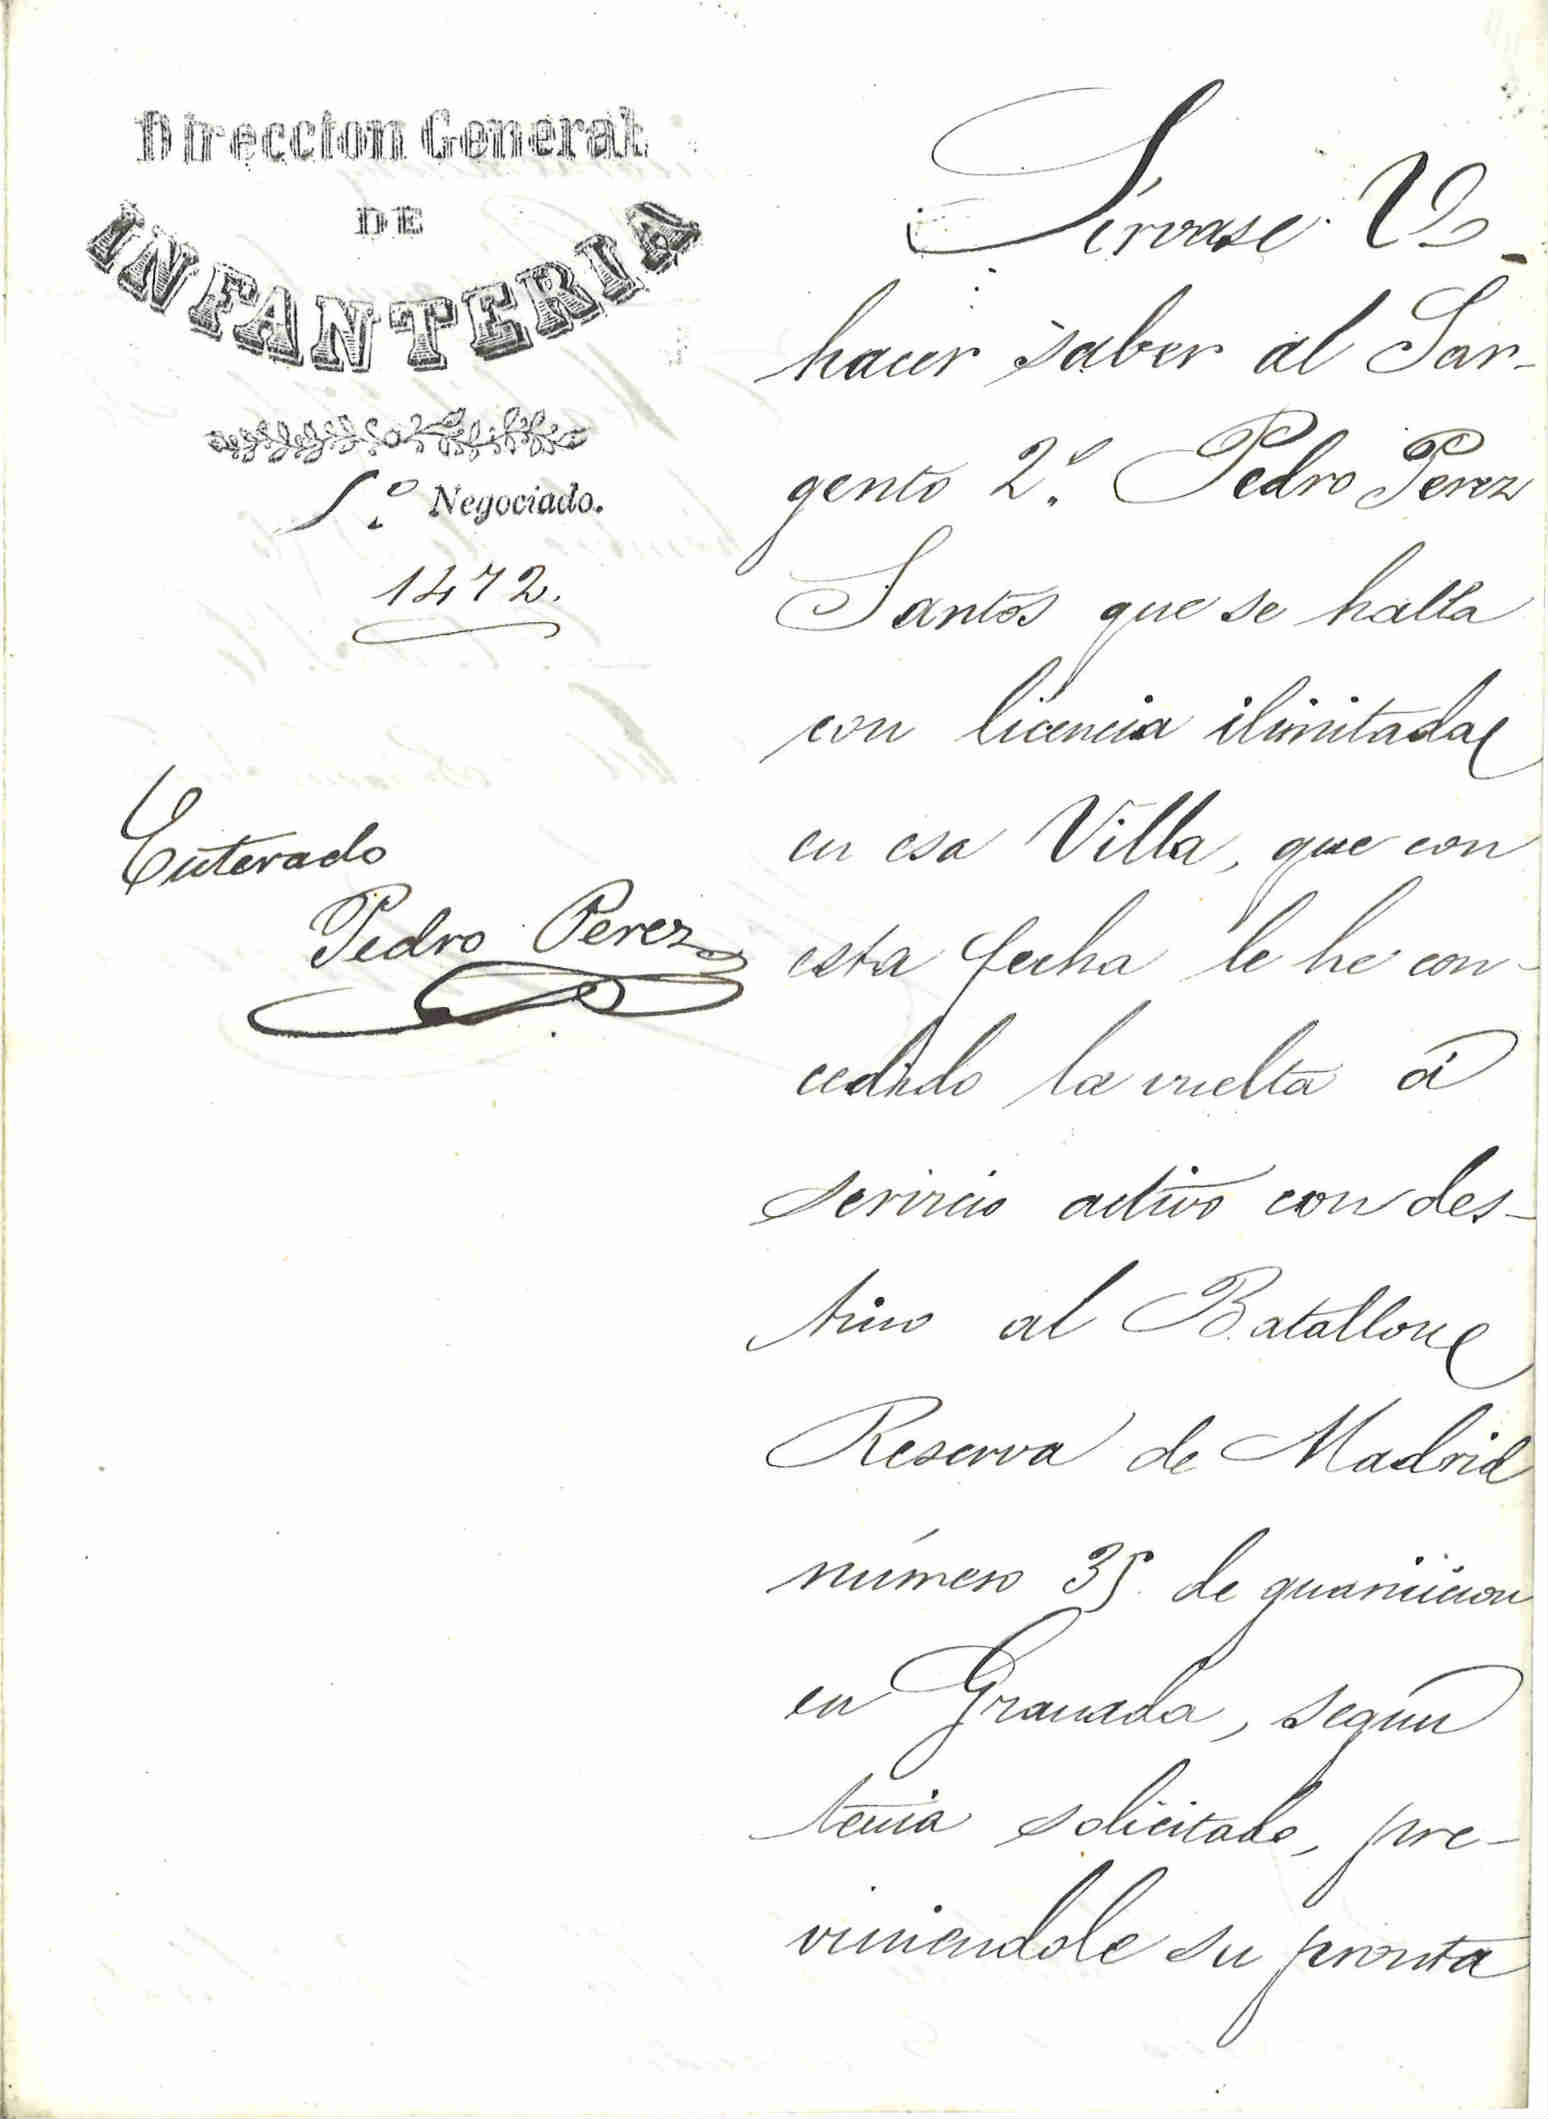 Direccion General
DE
INFANTERIA
5º Negociado.
1472.
Enterado
Pedro Perez
Sírvase V.
hacer saber al Sar-
gento 2º. Pedro Perez
Santos que se halla
con licencia ilimitada
en esa Villa, que con
esta fecha le he con-
cedido la vuelta á
servicio activo con des-
tino al Batallon
Reserva de Madrid
número 35 de guarnicion
en Granada, segun
tenia solicitado, pre-
viniendole su pronta